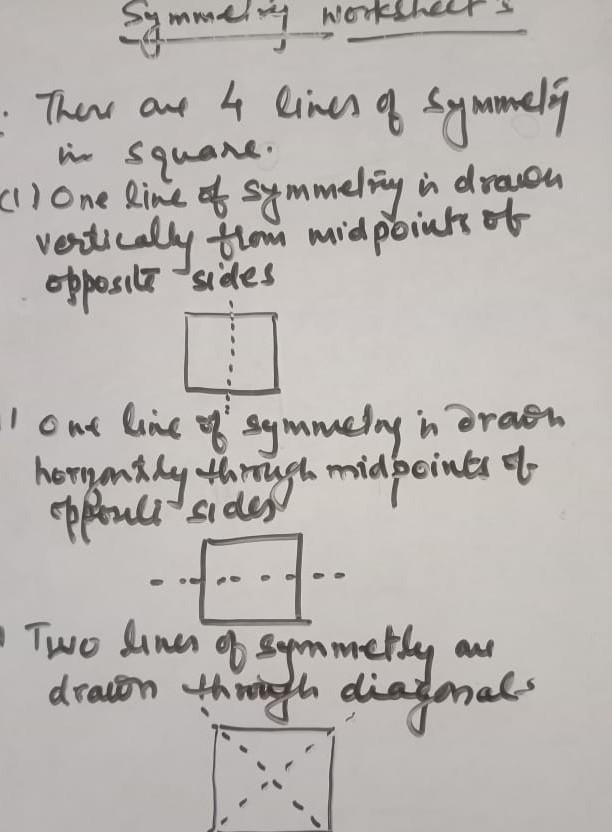 Symmetry worksheet's
. There are 4 lines of symmety
in square.
(1) One line of symmetry is drawn
vertically from midpoints of
opposite sides
One line of symmetry is drawn
horizontly through midpoints of
sides
Two lines of symmetly are
drawn through diagonals